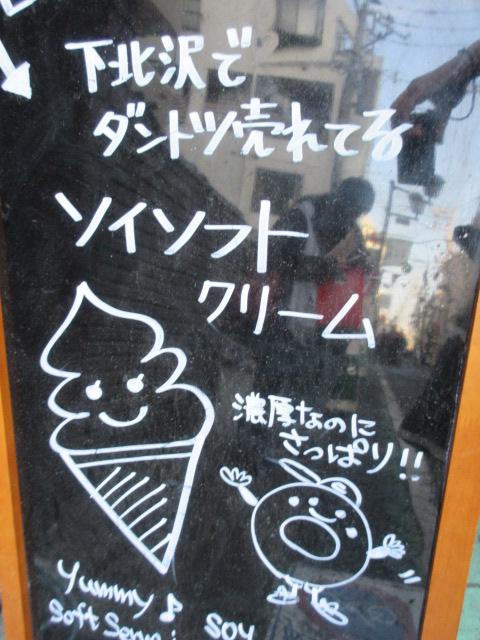 下北沢で
ダントツ売れてる
ソイソフト
クリーム
濃厚なのに
さっぱり!!
Yummy♪
Soft Serve: Soy